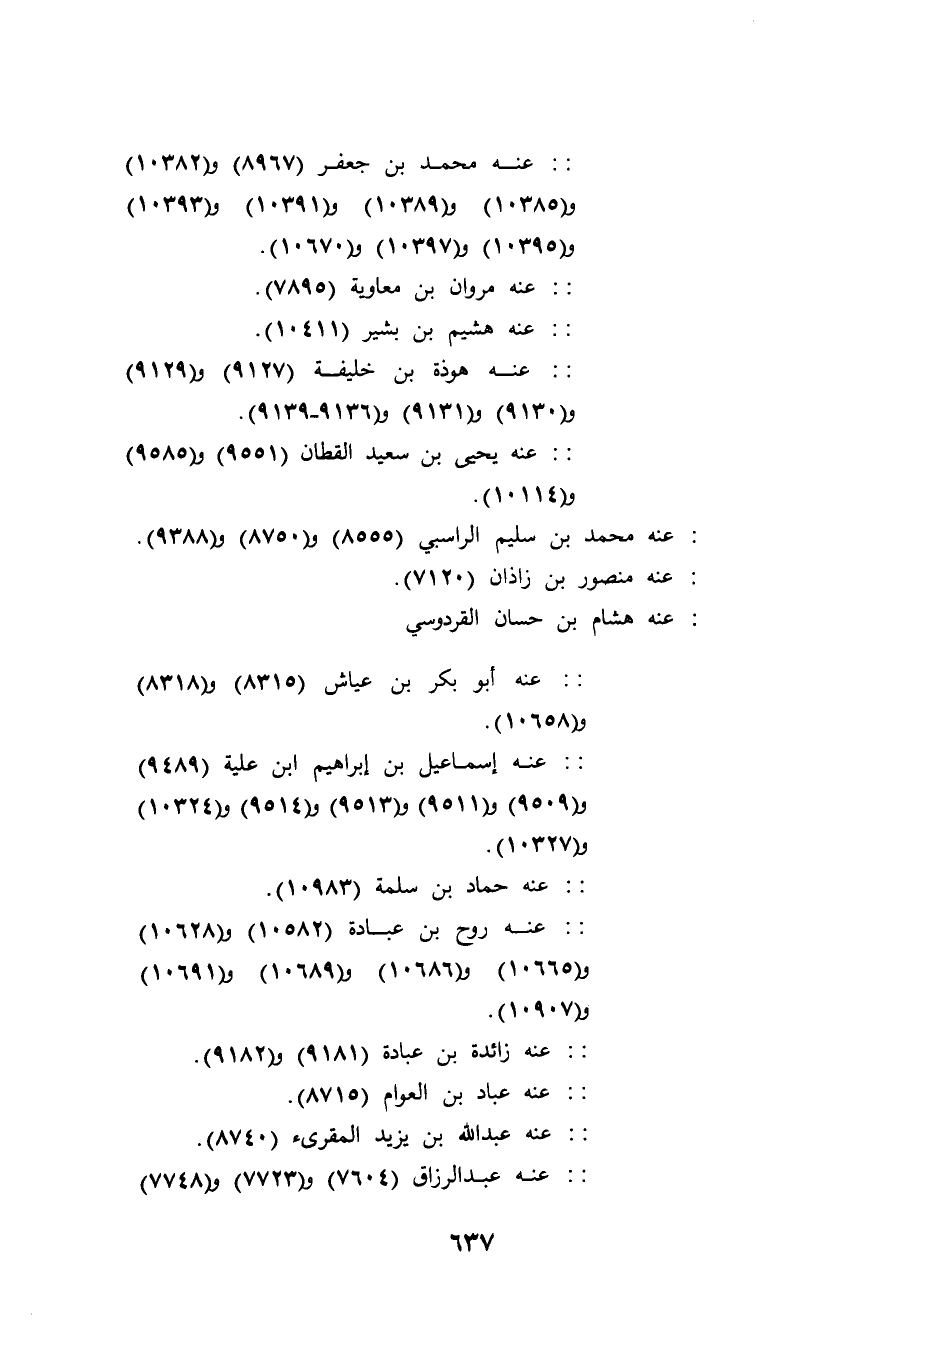 : : عنه محمد بن جعفر (٨٩٦٧) و(١٠٣٨٢)
و(١٠٣٨٥) و(١٠٣٨٩) و(١٠٣٩١) و(١٠٣٩٣)
و(١٠٣٩٥) و(١٠٣٩٧) و(١٠٦٧٠).
: : عنه مروان بن معاوية (٧٨٩٥).
: : عنه هشيم بن بشير (١٠٤١١).
: : عنه هوذة بن خليفة (٩١٢٧) و(٩١٢٩)
و(٩١٣٠) و(٩١٣١) و(٩١٣٦-٩١٣٩).
: : عنه يحيى بن سعيد القطان (٩٥٥١) و(٩٥٨٥)
و(١٠١١٤).
: عنه محمد بن سليم الراسبي (٨٥٥٥) و(٨٧٥٠) و(٩٣٨٨).
: عنه منصور بن زاذان (٧١٢٠).
: عنه هشام بن حسان القردوسي
: : عنه أبو بكر بن عياش (٨٣١٥) و(٨٣١٨)
و(١٠٦٥٨).
: : عنه إسماعيل بن إبراهيم ابن علية (٩٤٨٩)
و(٩٥٠٩) و(٩٥١١) و(٩٥١٣) و(٩٥١٤) و(١٠٣٢٤)
و(١٠٣٢٧).
: : عنه حماد بن سلمة (١٠٩٨٣).
: : عنه روح بن عبادة (١٠٥٨٢) و(١٠٦٢٨)
و(١٠٦٦٥) و(١٠٦٨٦) و(١٠٦٨٩) و(١٠٦٩١)
و(١٠٩٠٧).
: : عنه زائدة بن عبادة (٩١٨١) و(٩١٨٢).
: : عنه عباد بن العوام (٨٧١٥).
: : عنه عبدالله بن يزيد المقرىء (٨٧٤٠).
: : عنه عبدالرزاق (٧٦٠٤) و(٧٧٢٣) و(٧٧٤٨)
٦٣٧